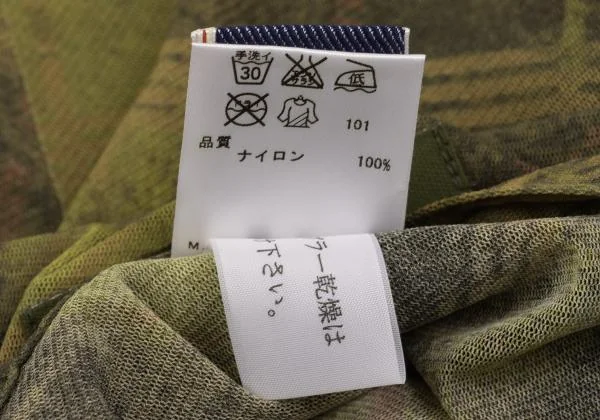 手洗イ
30
エンソサラシ
低
ドライ
101
品質
ナイロン
100%
M
ラー乾燥は
下さい。